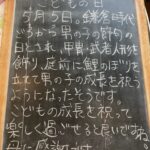 こどもの日
5月5日。鎌倉時代
ごろから男の子の節句の
日とされ、甲冑・武者人形を
飾り、庭前に鯉のぼりを
立てて男の子の成長を祝う
ようになったそうです。
こどもの成長を祝って
楽しく過ごせると良いですね。
母に感謝です